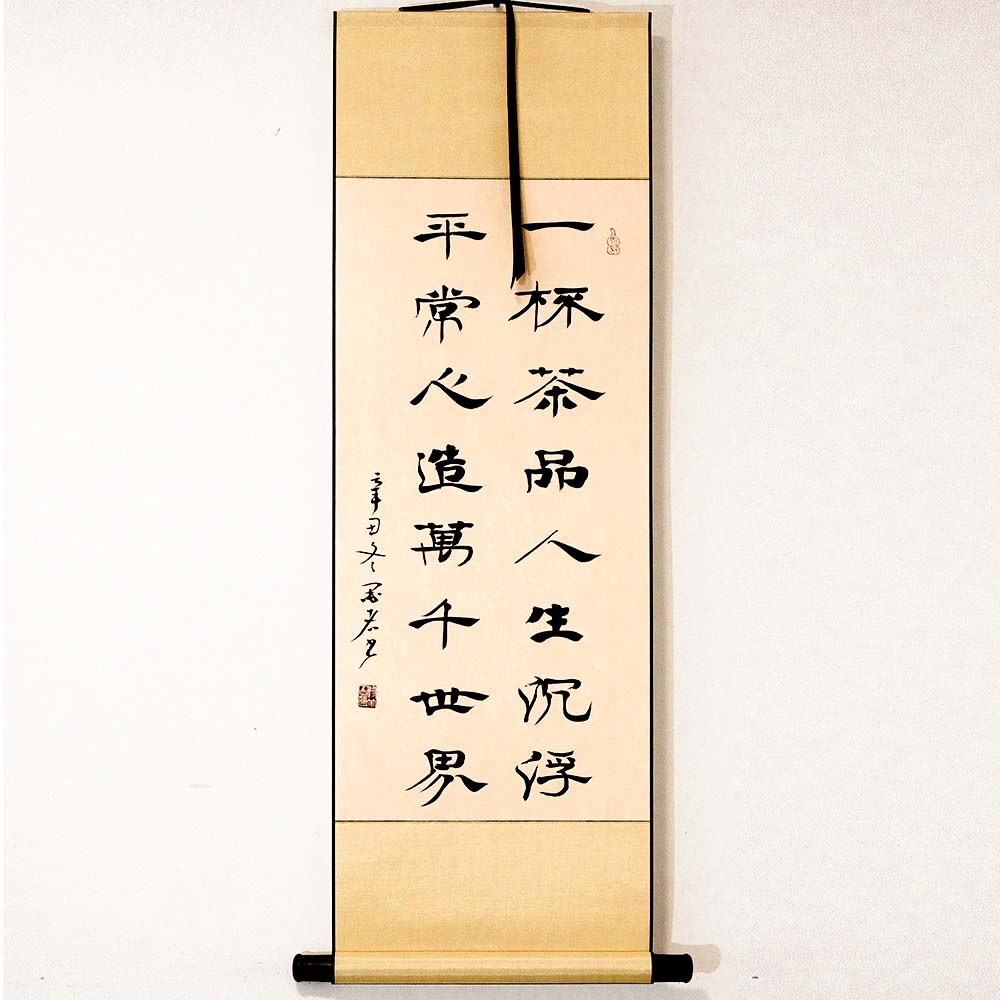 一杯茶品人生沉浮
平常心造萬千世界
辛丑冬